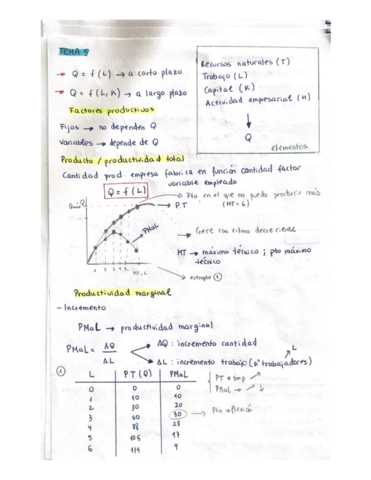 TEMA 5
→ Q = f(L) → a corto plazo
→ Q = f(L, K) → a largo plazo
Recursos naturales (T)
Trabajo (L)
Capital (K)
Actividad empresarial (H)
↓
Q
elementos
Factores productivos
Fijos → no dependen Q
Variables → depende de Q
Producto / productividad total
Cantidad prod. empresa fabrica en función cantidad factor
variable empleado
Q = f(L)
Pto en el que no pueda producir más
(MT = 6)
PT
PMaL
Crece con ritmo decreciente
MT → máximo técnico ; pto máximo
técnico
MT = 6
ejemplo ①
Productividad marginal
- Incremento
PMaL → productividad marginal
PMaL = ΔQ / ΔL
ΔQ : incremento cantidad
L
ΔL : incremento trabajo (nº trabajadores)
①
L PT (Q) PMaL
0 0 0
1 10 10
2 30 20
3 60 30 → Pto inflexión
4 88 28
5 105 17
6 114 9
PT → smp ↗
PMaL → ↗ ↘